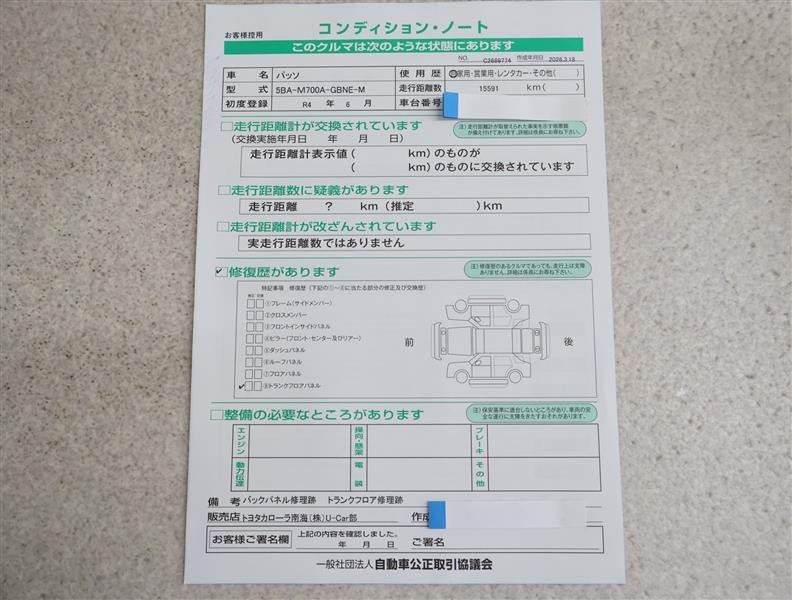 お客様控用
コンディション・ノート
このクルマは次のような状態にあります
NO. C2689774 作成年月日 2026.3.18
車名 パッソ 使用歴 自家用・営業用・レンタカー・その他( )
型式 5BA-M700A-GBNE-M 走行距離数 15591 km( )
初度登録 R4 年 6 月 車台番号
走行距離計が交換されています
(交換実施年月日 年 月 日)
注)走行距離計が取替えられた事実を示す帳票類
が備え付けてあります。詳細は係員にお尋ね下さい。
走行距離計表示値( km)のものが
( km)のものに交換されています
走行距離数に疑義があります
走行距離 ? km(推定 )km
走行距離計が改ざんされています
実走行距離数ではありません
✔修復歴があります
注)修復歴のあるクルマであっても、走行上は支障
ありません。詳細は係員にお尋ね下さい。
特記事項 修復歴(下記の①~⑧に当たる部分の修正及び交換歴)
修正 交換
①フレーム(サイドメンバー)
②クロスメンバー
③フロントインサイドパネル
④ピラー(フロント・センター及びリアー)
⑤ダッシュパネル
⑥ルーフパネル
⑦フロアパネル
✔⑧トランクフロアパネル
前 後
整備の必要なところがあります
注)保安基準に適合しないところがあり、車両の安
全な運行に支障をきたすおそれがあります。
エンジン 操向・懸架 ブレーキ
動力伝達 電装 その他
備考 バックパネル修理跡 トランクフロア修理跡
販売店 トヨタカローラ南海(株)U-Car部 作成
お客様ご署名欄 上記の内容を確認しました。
年 月 日 ご署名
一般社団法人 自動車公正取引協議会